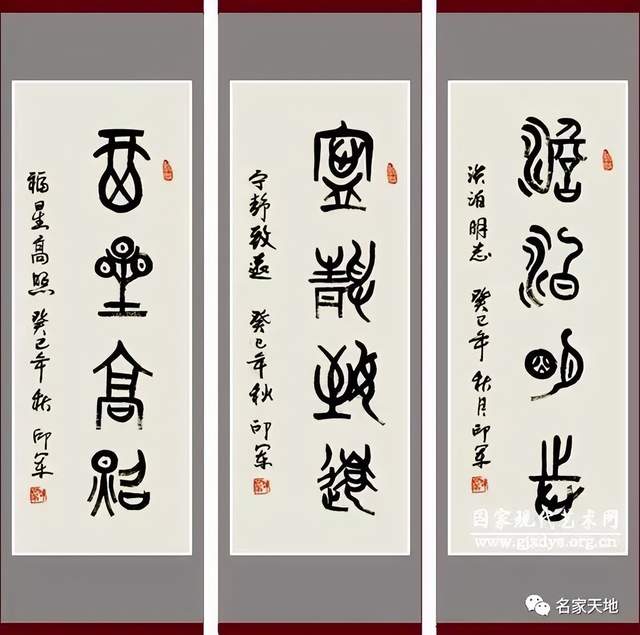 澹泊明志
淡泊明志 癸巳年 秋月 印军
寧靜致遠
宁静致遠 癸巳年秋 印军
福星高照
福星高照 癸巳年秋 印军
国家现代艺术网
www.gjxdys.org.cn
名家天地